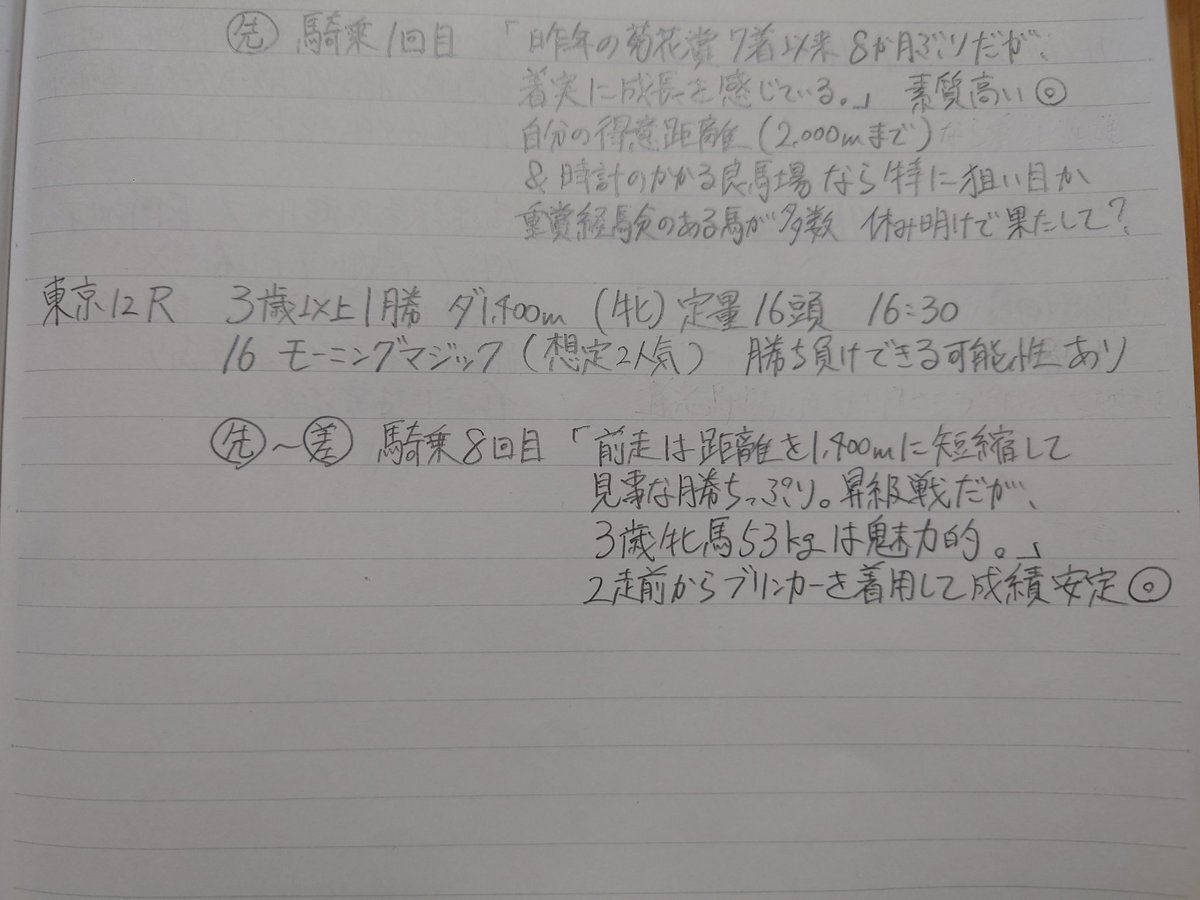 ㊛ 騎乗1回目 「昨年の菊花賞7着以来8か月ぶりだが、
着実に成長を感じている。」 素質高い◎
自分の得意距離(2,000mまで)
&時計のかかる良馬場なら特に狙い目か
重賞経験のある馬が多数 休み明けで果たして?
東京12R 3歳以上1勝 ダ1,400m (牝)定量16頭 16:30
16 モーニングマジック(想定2人気) 勝ち負けできる可能性あり
先~差 騎乗8回目 「前走は距離を1,400mに短縮して
見事な勝ちっぷり。昇級戦だが、
3歳牝馬53kgは魅力的。」
2走前からブリンカーを着用して成績安定◎